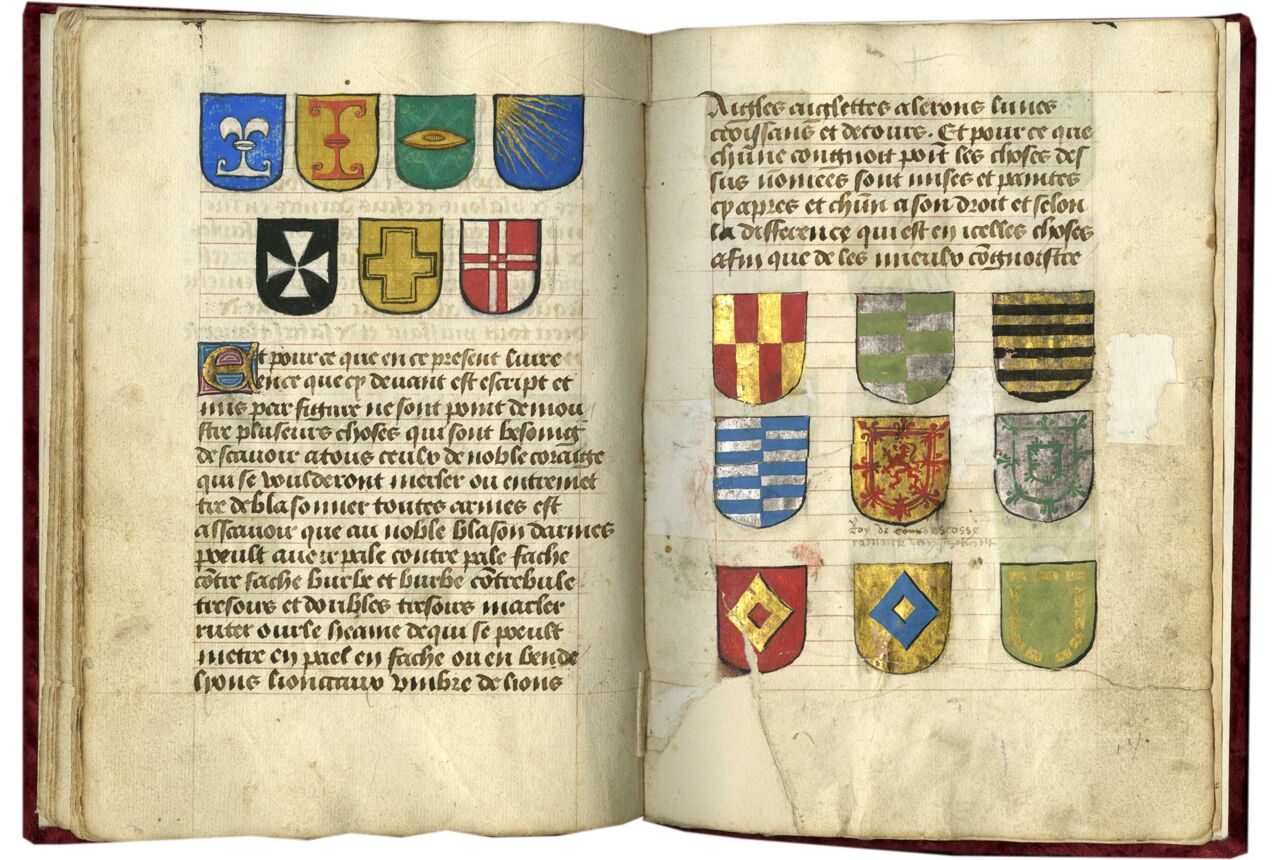 Et pour ce que en ce present livre
ence que cy devant est escript et
mis par figure ne sont point demou
stre pluseurs choses qui sont besoing
de scavoir a tous ceulx de noble coraige
qui se vouldront mesler ou entremet
tre de blasonner toutes armes est
asscavoir que au noble blason darmes
poeult avoir pale contre pale fache
cōtre fache burbe et burbe cōtrebule
tresours et doubles tresours macler
ruter our le heame de qui se poeult
metre en pael en fache ou en bende
lyons lionceaux umbre de lions
Aigles aiglettes alerons lunes
croissans et decours. Et pour ce que
chūne congnoit poīt les choses des
sus nōmees sont mises et paintes
cy apres et chūn a son droit et selon
la difference qui est en icelles choses
afin que de les mieulx cōgnoistre
Roy de escosse